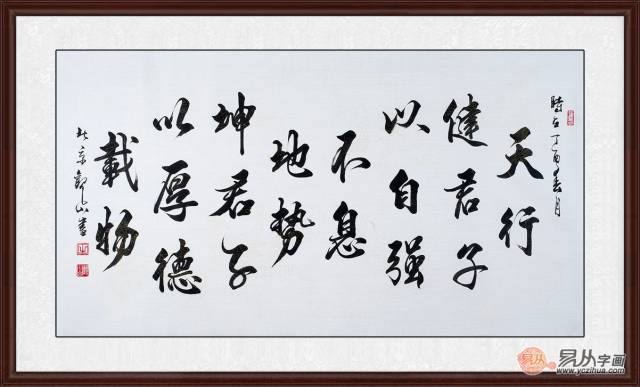 時在丁酉春月
天行
健君子
以自强
不息
地勢
坤君子
以厚德
載物
北京郭山書
易从字画
www.yczihua.com